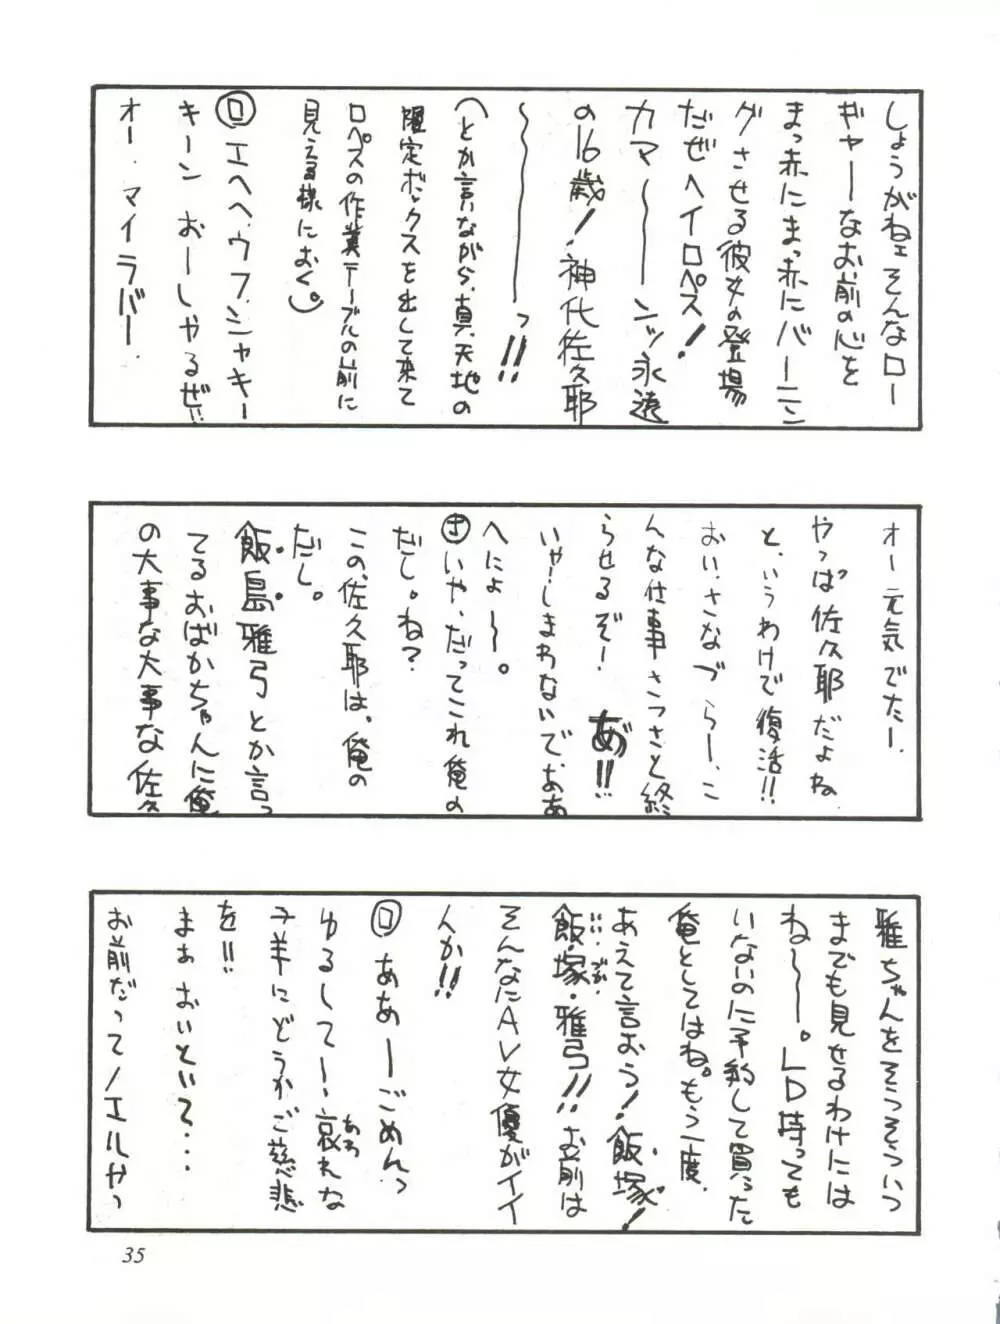 しょうがねェそんなロー
ギャーなお前の心を
まっ赤にまっ赤にバーニン
グさせる彼女の登場
だぜヘイロペス!
カマ〜〜ンッ永遠
の16歳!神代佐久耶
〜〜〜〜っ!!
(とか言いながら、真・天地の
限定ボックスを出して来て
ロペスの作業テーブルの前に
見える様におく。)
ロ エヘヘ、ウフ、シャキー
キーン おーしやるぜ!!
オー・マイラバー・
オー元気でたー、
やっぱ佐久耶だよね、
と、いうわけで復活!!
おい、さなづらー、こ
んな仕事さっさと終
らせるぞー! あ゛!!
いやーしまわないでおああ
へによ〜。
さ いや、だってこれ俺の
だし。ね?
この、佐久耶は、俺の
だし。
飯島雅弓とか言っ
てるおばかちゃんに俺
の大事な大事な佐久
雅ちゃんをそうそういつ
までも見せるわけには
ね〜〜。LD持っても
いないのに予約して買った
俺としてはね。もう一度、
あえて言おう!飯塚!
飯・塚・雅弓!!お前は
そんなにAV女優がイイ
んか!!
ロ ああーごめんっ
ゆるしてー、哀れな
あわ
子羊にどうかご慈悲
を!!
まぁおいといて・・・
お前だってノエルやっ
35